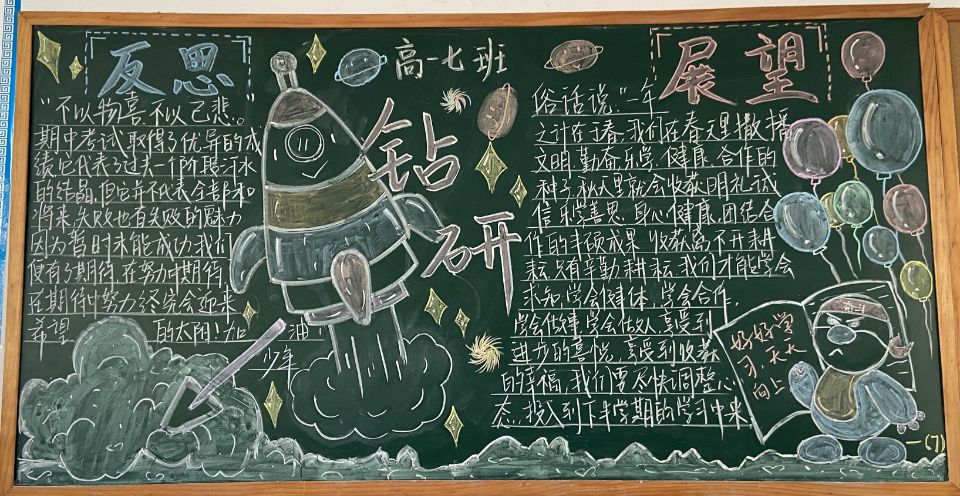 反思
"不以物喜不以己悲。"
期中考试取得了优异的成
绩它代表了过去一个阶段汗水
的结晶但它并不代表全部和
将来失败也有失败的魅力
因为暂时未能成功我们
便有了期待在努力中期待
在期待中努力终究会迎来
希望的太阳!加油
少年
高一七班
钻研
展望
俗话说:"一年
之计在于春我们在春天里撒播
文明勤奋乐学健康合作的
种子秋天里就会收获明礼诚
信乐学善思身心健康团结合
作的丰硕成果收获离不开耕
耘只有辛勤耕耘我们才能学会
求知,学会健体,学会合作,
学会做事,学会做人,享受到
进步的喜悦,享受到收获
的幸福,我们要尽快调整心
态,投入到下半学期的学习中来
奋斗
好好学
习,天天
向上
一(7)